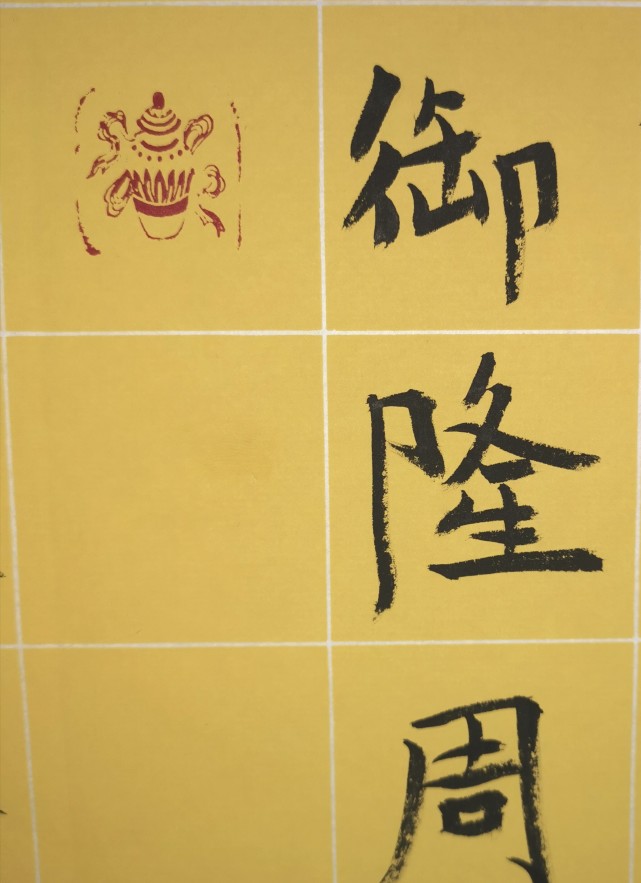 御
隆
周